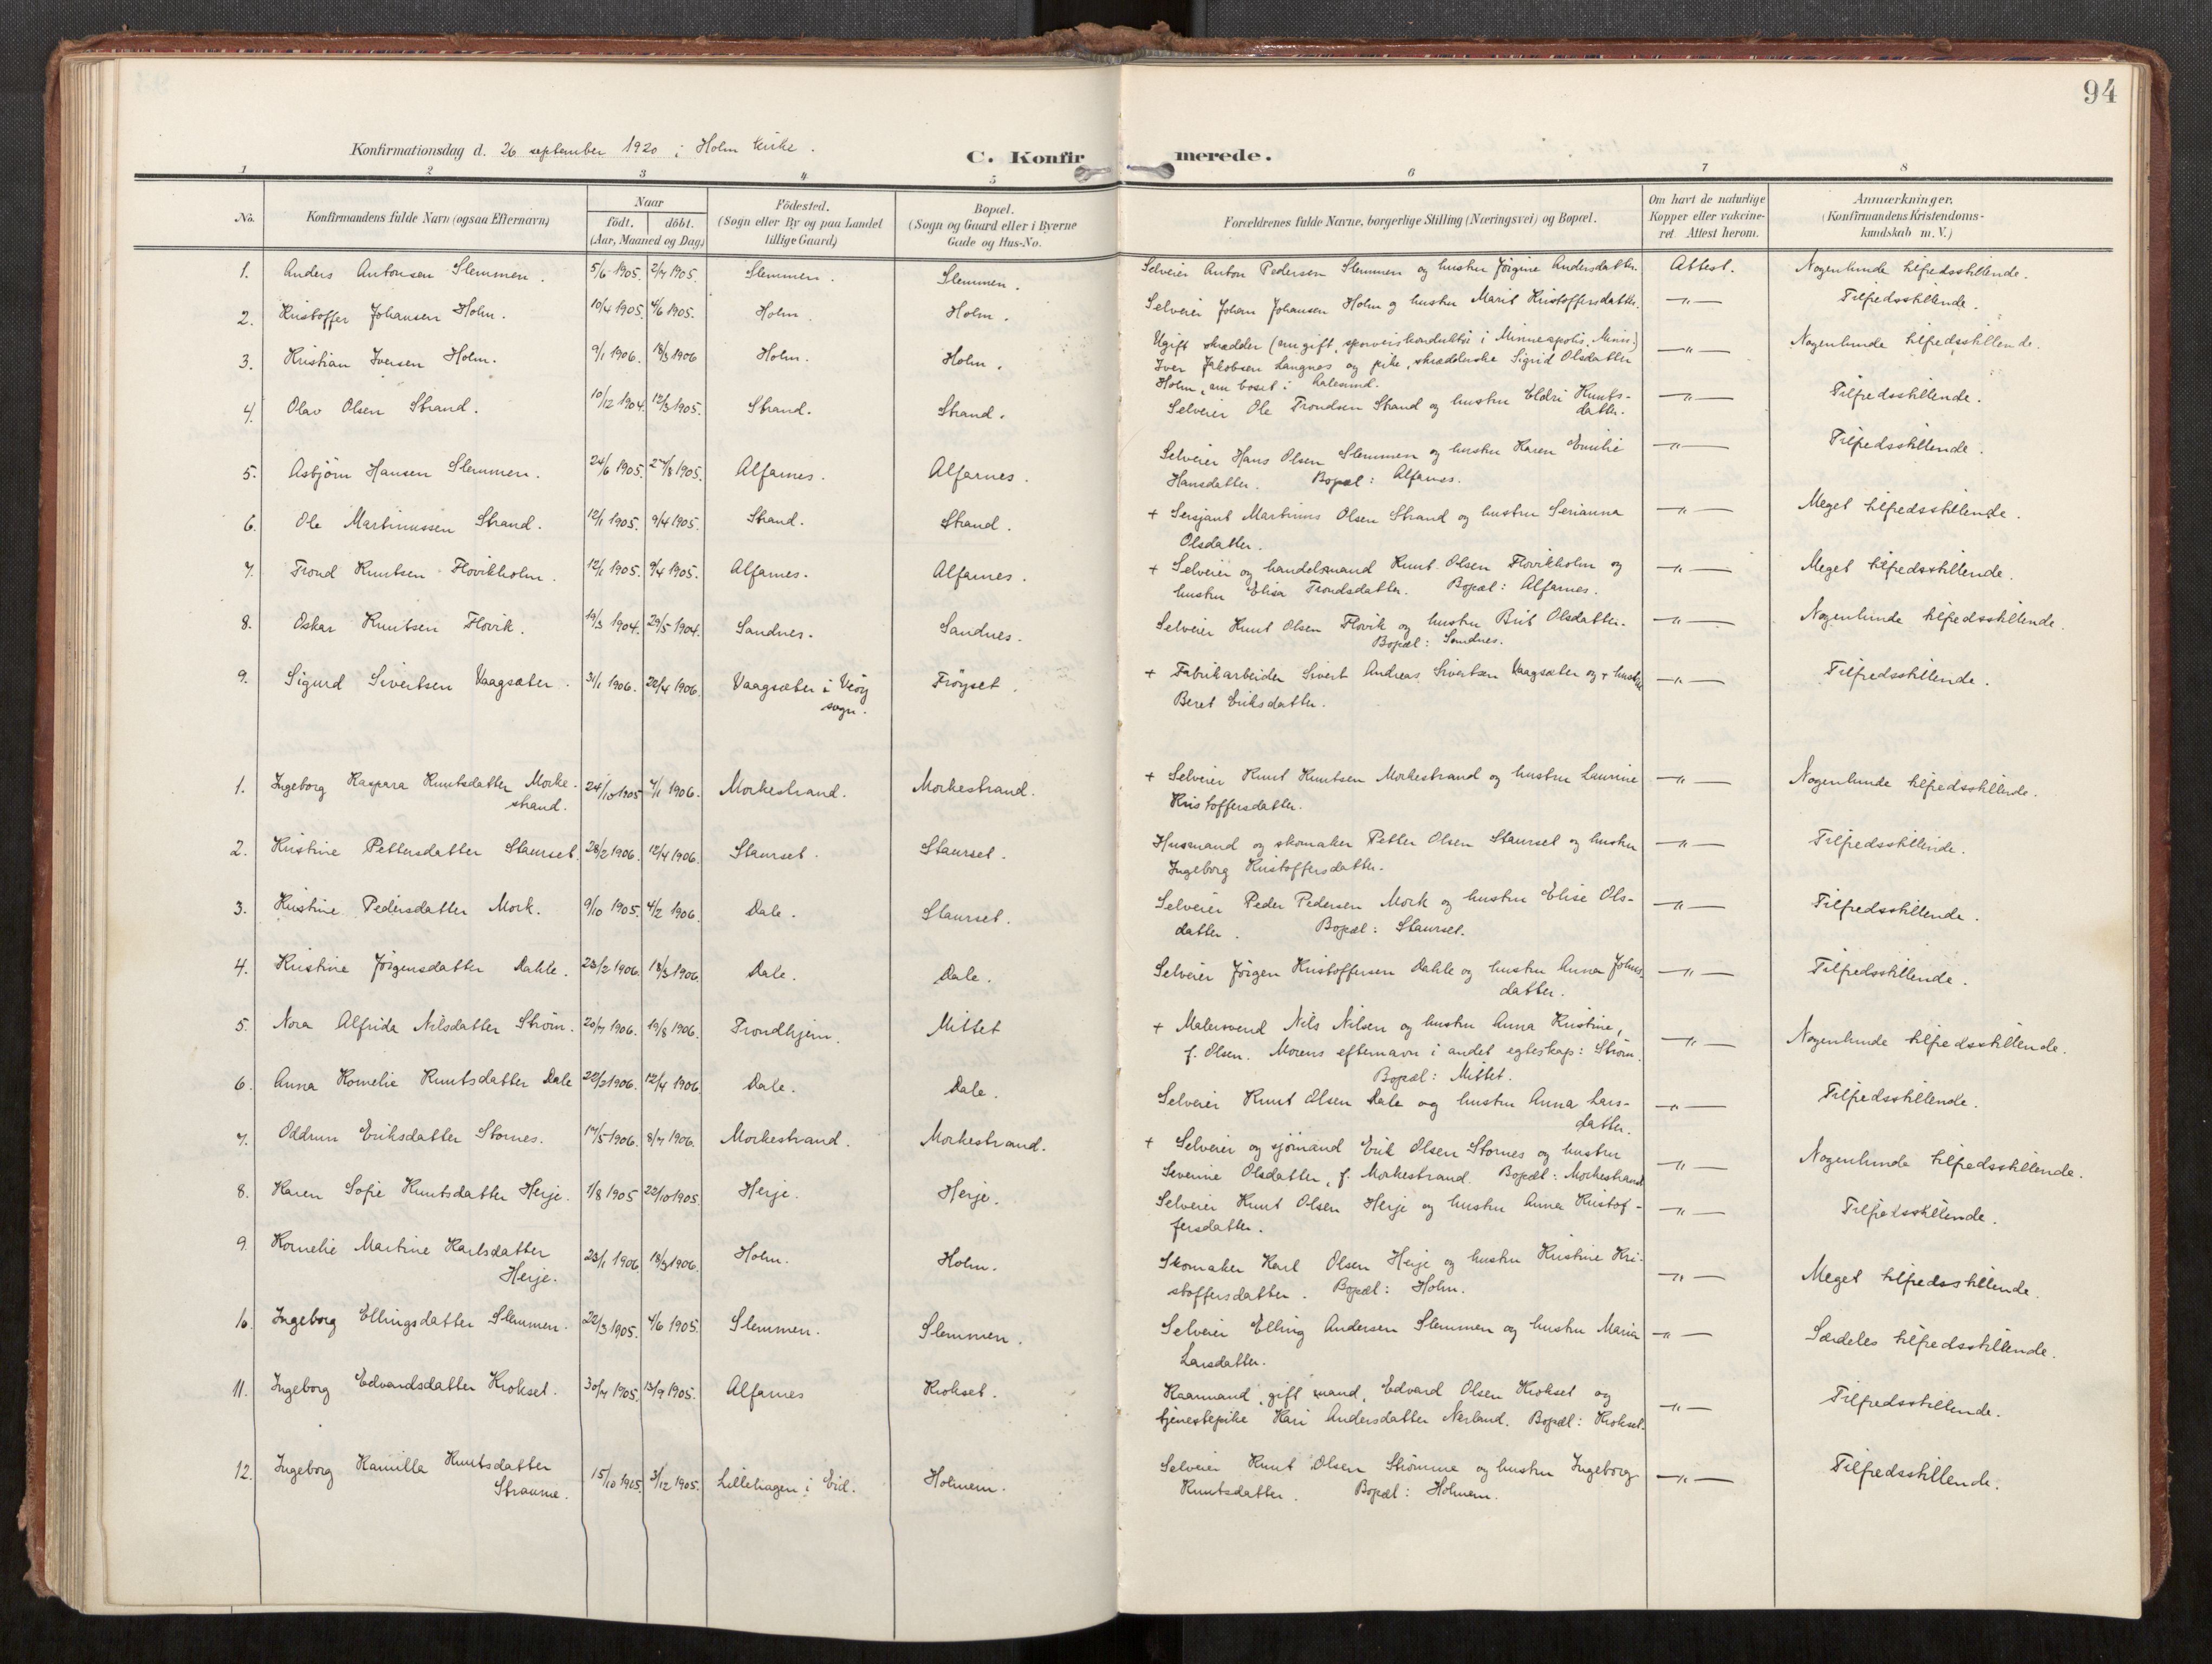 94
Konfirmationsdag d. 26 september 1920 i Holm kirke.
C. Konfirmerede.
1 2 3 4 5 6 7 8
No. Konfirmandens fulde Navn (ogsaa Efternavn) Naar født. døbt. (Aar, Maaned og Dag) Födested. (Sogn eller By og paa Landet tillige Gaard) Bopæl. (Sogn og Gaard eller i Byerne Gade og Hus-No. Forældrenes fulde Navne, borgerlige Stilling (Næringsvei) og Bopæl. Om havt de naturlige Kopper eller vakcineret. Attest herom. Anmærkninger. (Konfirmandens Kristendomskundskab m. V.)
1. Anders Antonsen Slemmen. 5/6 1905. 2/7 1905. Slemmen. Slemmen. Selveier Anton Pedersen Slemmen og hustru Jörgine Andersdatter. Attest. Nogenlunde tilfredsstillende.
2. Kristoffer Johansen Holm. 10/4 1905. 4/6 1905. Holm. Holm. Selveier Johan Johansen Holm og hustru Marit Kristoffersdatter. —"— Tilfredsstillende.
3. Kristian Iversen Holm. 9/1 1906. 18/3 1906 Holm. Holm. Ugift skrædder (nu gift, sporveiskonduktör i Minneapolis, Minn.)
Iver Jakobsen Langnes og pike, skrædderske Sigrid Olsdatter —"— Nogenlunde tilfredsstillende.
Holm, nu bosat i Aalesund.
4. Olav Olsen Strand. 10/12 1904. 12/3 1905. Strand. Strand. Selveier Ole Trondsen Strand og hustru Eldri Knuts-
datter. —"— Tilfredsstillende.
5. Asbjörn Hansen Slemmen. 24/6 1905. 27/8 1905. Alfarnes. Alfarnes. Selveier Hans Olsen Slemmen og hustru Karen Emilie
Hansdatter. Bopæl: Alfarnes. —"— Tilfredsstillende.
6. Ole Martinussen Strand. 12/1 1905. 9/4 1905. Strand. Strand. + Sersjant Martinus Olsen Strand og hustru Serianna
Olsdatter. —"— Meget tilfredsstillende.
7. Trond Knutsen Flovikholm. 12/1 1905. 9/4 1905. Alfarnes. Alfarnes. + Selveier og handelsmand Knut Olsen Flovikholm og
hustru Elisa Trondsdatter. Bopæl: Alfarnes. —"— Meget tilfredsstillende.
8. Oskar Knutsen Flovik. 19/3 1904. 29/5 1904. Sandnes. Sandnes. Selveier Knut Olsen Flovik og hustru Brit Olsdatter.
Bopæl: Sandnes. —"— Nogenlunde tilfredsstillende.
9. Sigurd Sivertsen Vaagsæter. 31/1 1906. 22/4 1906. Vaagsæter i Veöy
sogn. Fröyset. + Fabrikarbeider Sivert Andreas Sivertsen Vaagsæter og + hustru
Beret Eriksdatter. —"— Tilfredsstillende.
1. Ingeborg Kaspara Knutsdatter Morke-
strand. 24/10 1905 7/1 1906. Morkestrand. Morkestrand. + Selveier Knut Knutsen Morkestrand og hustru Laurine
Kristoffersdatter. —"— Nogenlunde tilfredsstillende.
2. Kristine Pettersdatter Staurset. 28/2 1906. 12/4 1906. Staurset. Staurset. Husmand og skomaker Petter Olsen Staurset og hustru
Ingeborg Kristoffersdatter. —"— Tilfredsstillende.
3. Kristine Pedersdatter Mork. 9/10 1905. 4/2 1906. Dale. Staurset. Selveier Peder Pedersen Mork og hustru Elise Ols-
datter. Bopæl: Staurset. —"— Tilfredsstillende.
4. Kristine Jörgensdatter Dahle. 23/2 1906. 18/3 1906. Dale. Dale. Selveier Jörgen Kristoffersen Dahle og hustru Anna Johns-
datter. —"— Tilfredsstillende.
5. Nora Alfrida Nilsdatter Ström. 20/7 1906. 19/8 1906. Trondhjem. Mittet + Malersvend Nils Nilsen og hustru Anna Kristine,
f. Olsen. Morens efternavn i andet egteskap: Ström.
Bopæl: Mittet. —"— Nogenlunde tilfredsstillende.
6. Anna Kornelie Knutsdatter Dale 22/2 1906. 12/4 1906 Dale. Dale. Selveier Knut Olsen Dale og hustru Anna Lars-
datter. —"— Tilfredsstillende.
7. Oddrun Eriksdatter Stornes. 17/5 1906. 8/7 1906. Morkestrand. Morkestrand. + Selveier og sjömand Erik Olsen Stornes og hustru
Severine Olsdatter, f. Morkestrand. Bopæl: Morkestrand —"— Nogenlunde tilfredsstillende.
8. Karen Sofie Knutsdatter Herje. 1/8 1905 22/10 1905 Herje. Herje. Selveier Knut Olsen Herje og hustru Anna Kristof-
fersdatter. —"— Tilfredsstillende.
9. Kornelie Martine Karlsdatter
Herje. 23/1 1906. 18/3 1906. Holm. Holm. Skomaker Karl Olsen Herje og hustru Kristine Kri-
stoffersdatter. Bopæl: Holm. —"— Meget tilfredsstillende.
10. Ingeborg Ellingsdatter Slemmen. 22/3 1905. 4/6 1905. Slemmen. Slemmen. Selveier Elling Andersen Slemmen og hustru Maria
Larsdatter. —"— Særdeles tilfredsstillende.
11. Ingeborg Edvardsdatter Krokset. 30/7 1905. 13/9 1905. Alfarnes Krokset. Kaarmand, gift mand, Edvard Olsen Krokset og
tjenestepike Kari Andersdatter Nerland. Bopæl: Krokset. —"— Tilfredsstillende.
12. Ingeborg Kamilla Knutsdatter
Straume. 15/10 1905. 3/12 1905. Lillehagen i Eid. Holmem. Selveier Knut Olsen Strömme og hustru Ingeborg
Knutsdatter. Bopæl: Holmem. —"— Tilfredsstillende.